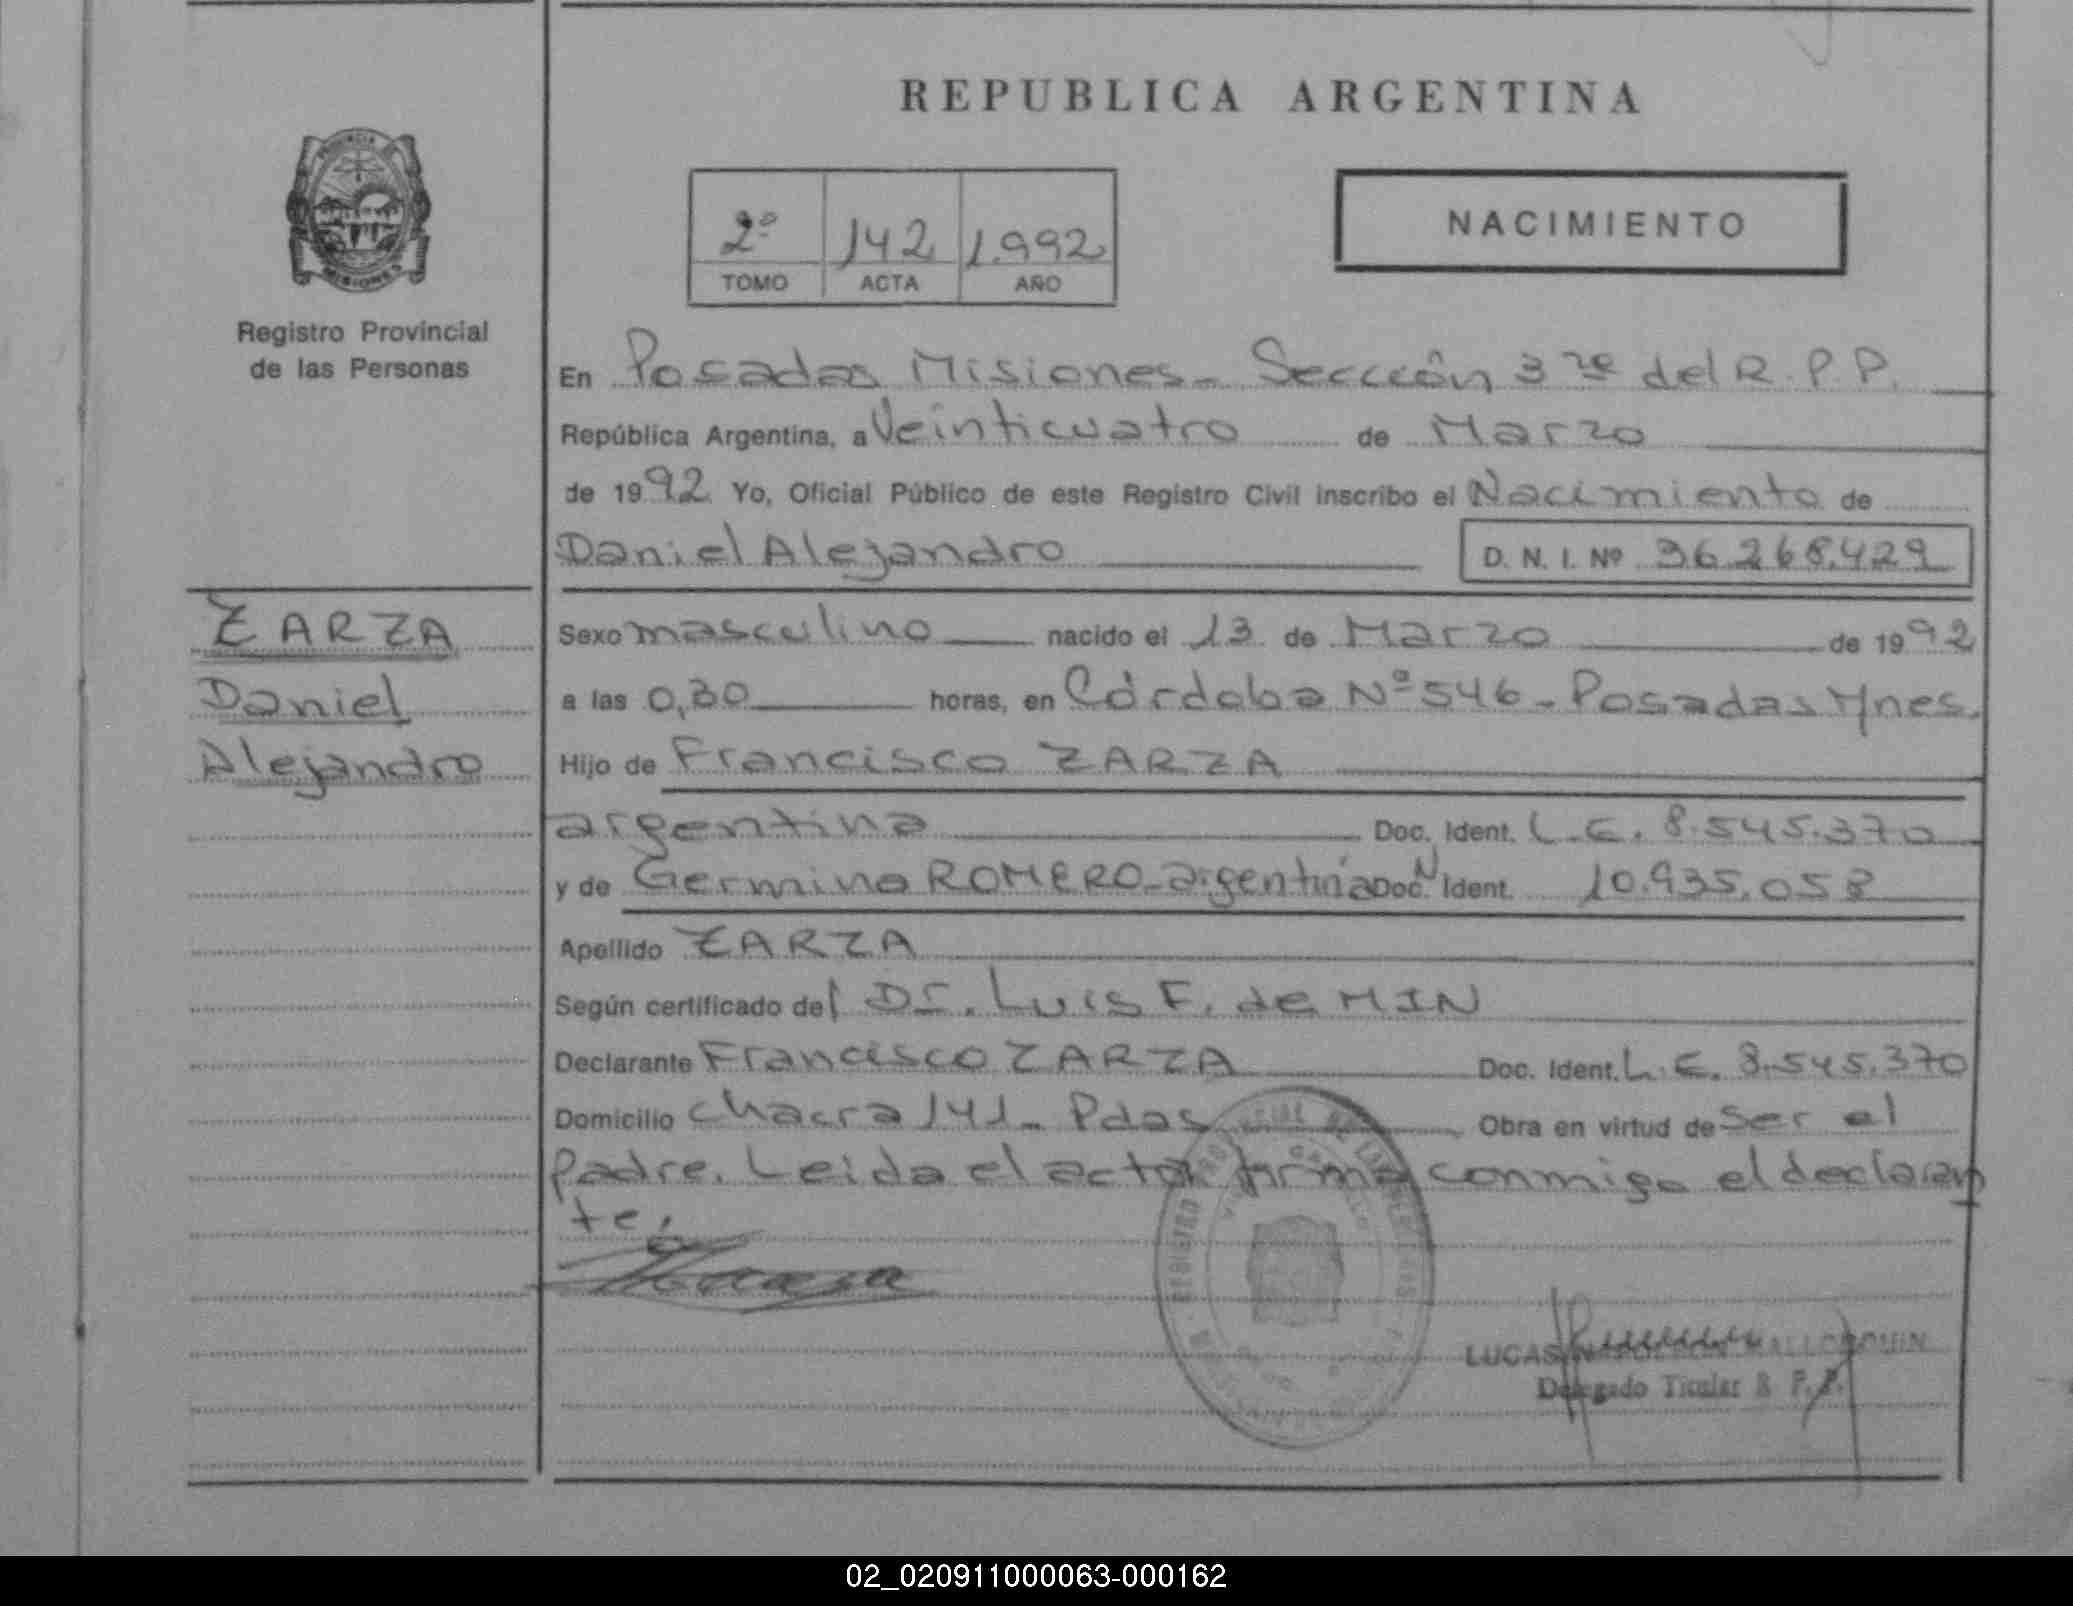 REPUBLICA ARGENTINA
PROVINCIA
MISIONES
Registro Provincial
de las Personas
2º 142 1.992
TOMO ACTA AÑO
NACIMIENTO
En Posadas Misiones - Sección 3ra del R.P.P.
República Argentina, a Veinticuatro de Marzo
de 1992. Yo, Oficial Público de este Registro Civil inscribo el Nacimiento de
Daniel Alejandro D. N. I. Nº 36.268.429
ZARZA
Daniel
Alejandro
Sexo masculino nacido el 13 de Marzo de 1992
a las 0,30 horas, en Córdoba Nº 546 - Posadas Mnes.
Hijo de Francisco ZARZA
argentina Doc. Ident. L.E. 8.545.370
y de Germina ROMERO - argentina Doc. N Ident. 10.935.058
Apellido ZARZA
Según certificado del Dr. Luis F. de MIN
Declarante Francisco ZARZA Doc. Ident. L.E. 8.545.370
Domicilio Chacra 141 - Pdas Obra en virtud de Ser el
padre. Leida el acta firma conmigo el declaran
te.
LUCAS MALLORQUIN
Delegado Titular R. P. P.
02_020911000063-000162